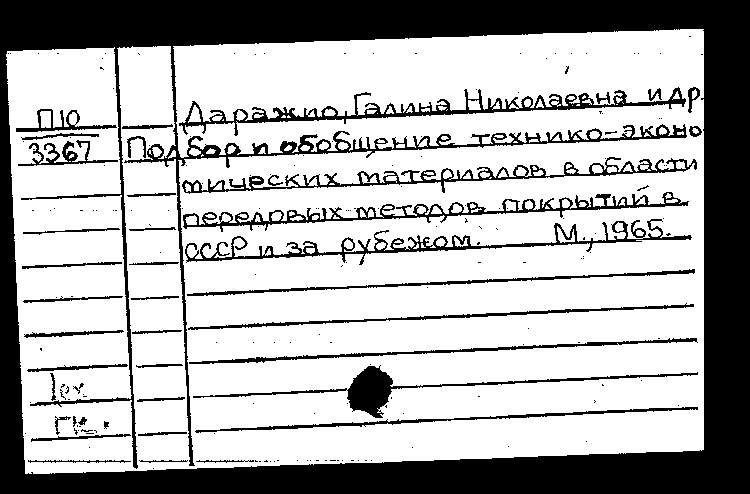 П10
3367
Даражио, Галина Николаевна и др.
Подбор и обобщение технико-эконо
мических материалов в области
передовых методов покрытий в
СССР и за рубежом. М., 1965.
Тех
ГК.